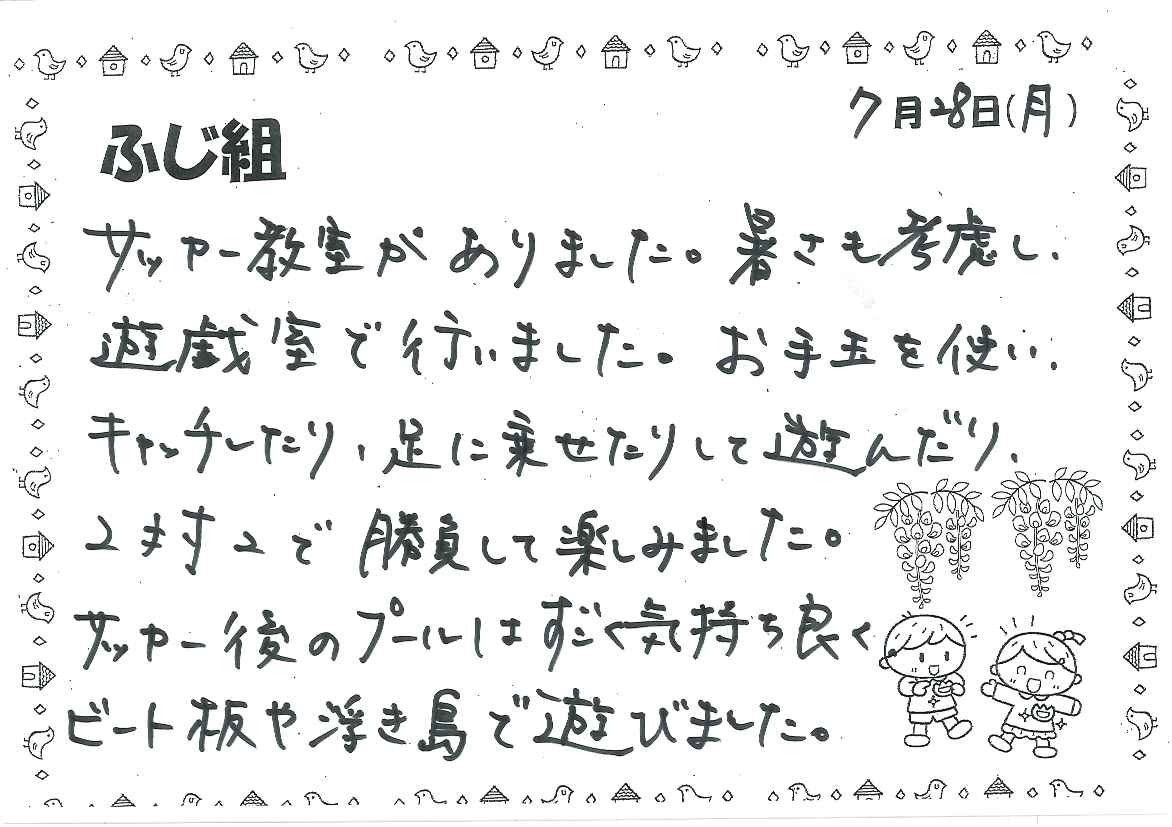 7月28日(月)
ふじ組
サッカー教室がありました。暑さも考慮し、
遊戯室で行いました。お手玉を使い、
キャッチしたり、足に乗せたりして遊んだり、
2対2で勝負して楽しみました。
サッカー後のプールはすごく気持ち良く
ビート板や浮き島で遊びました。